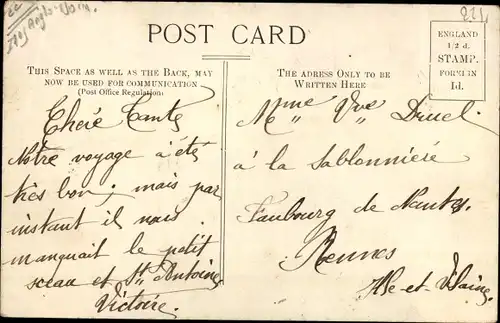 POST CARD
ENGLAND
1/2 d.
STAMP.
FOREIGN
1d.
THIS SPACE AS WELL AS THE BACK, MAY
NOW BE USED FOR COMMUNICATION
(Post Office Regulation)
THE ADRESS ONLY TO BE
WRITTEN HERE
Chère Tante
Notre voyage a été
très bon; mais par
instant il nous
manquait le petit
sceau et St Antoine
Victoire.
Mme Vve Druel
à la Sablonnière
Faubourg de Nantes
Rennes
Ille-et-Vilaine
224